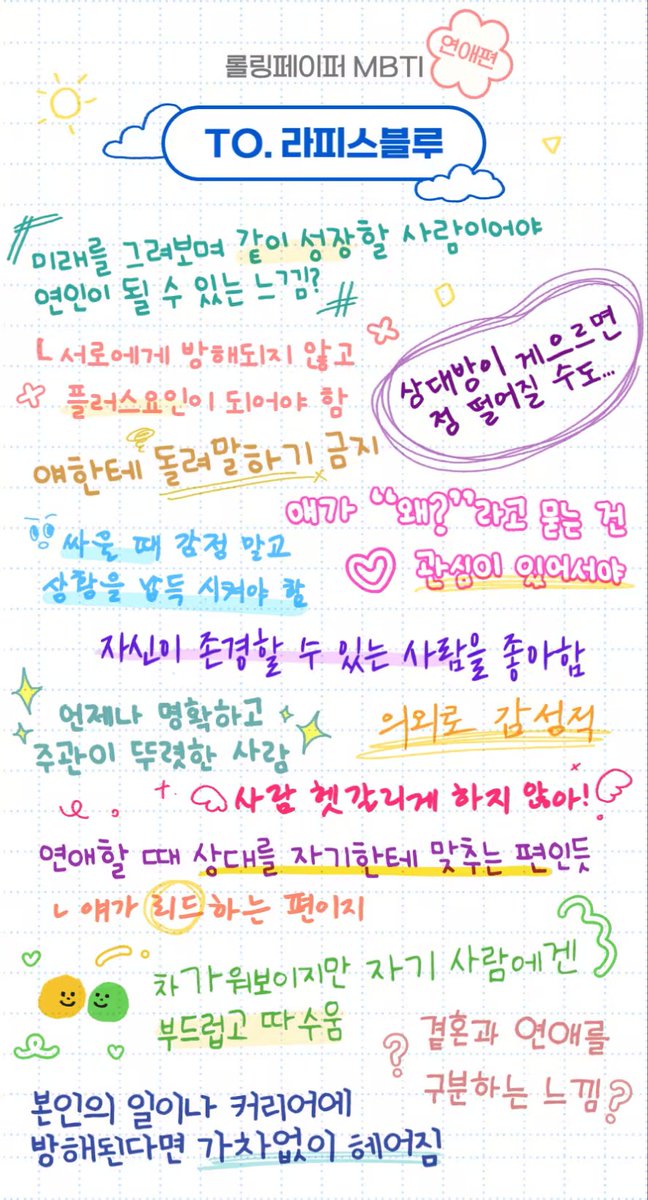 롤링페이퍼 MBTI
연애편
TO. 라피스블루
미래를 그려보며 같이 성장할 사람이어야
연인이 될 수 있는 느낌?
ㄴ서로에게 방해되지 않고
플러스요인이 되어야 함
상대방이 게으르면
정 떨어질 수도...
얘한테 돌려말하기 금지
얘가 “왜?”라고 묻는 건
관심이 있어서야
싸울 때 감정 말고
상황을 납득 시켜야 함
자신이 존경할 수 있는 사람을 좋아함
언제나 명확하고
주관이 뚜렷한 사람
의외로 감성적
사람 헷갈리게 하지 않아!
연애할 때 상대를 자기한테 맞추는 편인듯
ㄴ 얘가 리드하는 편이지
차가워보이지만 자기 사람에겐
부드럽고 따수움
결혼과 연애를
구분하는 느낌
본인의 일이나 커리어에
방해된다면 가차없이 헤어짐